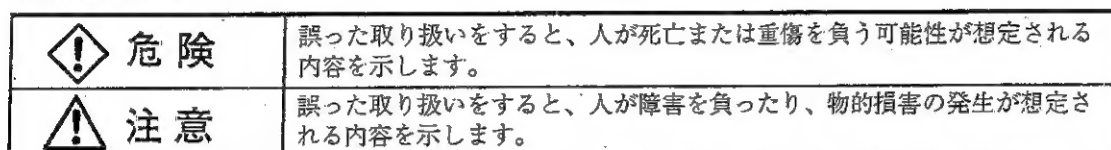 危険
誤った取り扱いをすると、人が死亡または重傷を負う可能性が想定される
内容を示します。
注意
誤った取り扱いをすると、人が障害を負ったり、物的損害の発生が想定さ
れる内容を示します。